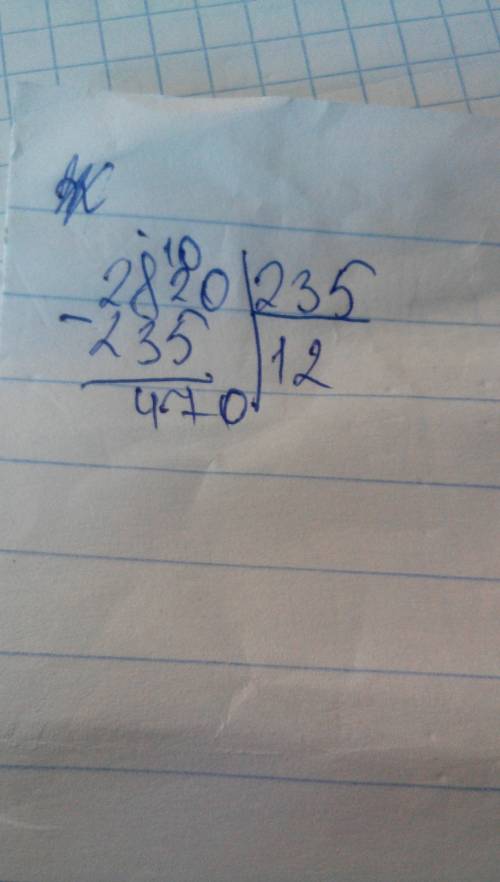 Ж
10
2820 235
-235 12
470